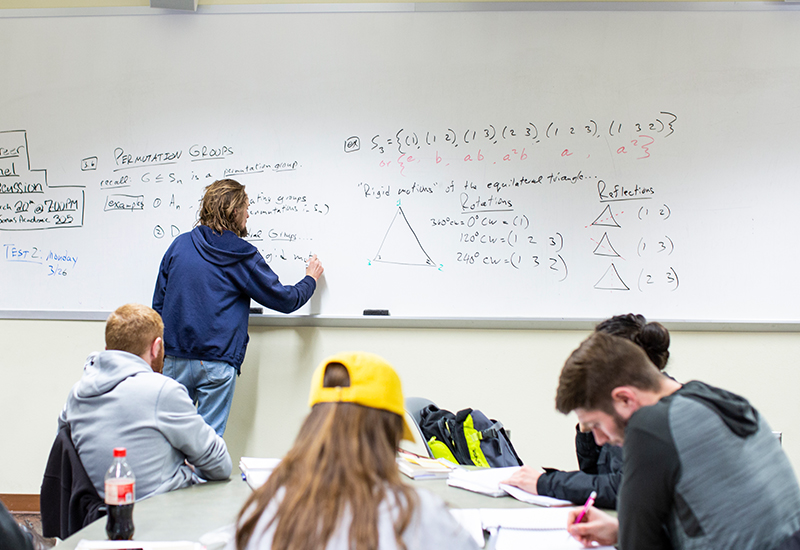 Discussion
30th @ 7:00PM
Academic 305
TEST 2: Monday
3/26
3.6 PERMUTATION GROUPS
recall G ≤ Sn is a permutation group.
examples ① An
② D
Groups...
ex S3 = {(1), (1 2), (1 3), (2 3), (1 2 3), (1 3 2)}
or {e, b, ab, a²b, a, a²}
"Rigid motions" of the equilateral triangle...
Rotations
360° CW = 0° CW = (1)
120° CW = (1 2 3)
240° CW = (1 3 2)
Reflections
(1 2)
(1 3)
(2 3)